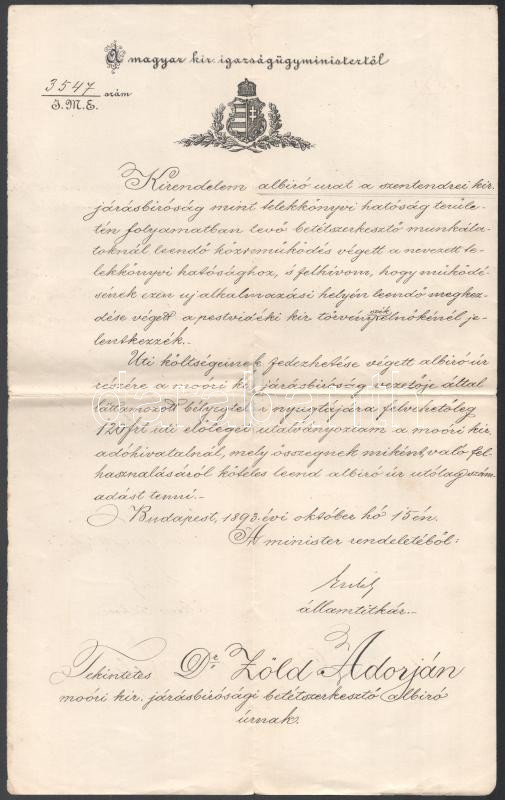 A magyar kir. igazságügyministertől
3547 szám
I.M.E.
Kirendelem albíró urat a szentendrei kir.
járásbíróság mint telekkönyvi hatóság terüle-
tén folyamatban levő betétszerkesztő munkála-
toknál leendő közreműködés végett a nevezett te-
lekkönyvi hatósághoz, s felhívom, hogy működé-
sének ezen uj alkalmazási helyén leendő megkez-
dése végett a pestvidéki kir törvényszék elnökénél je-
lentkezzék.-
Uti költségeinek fedezhetése végett albíró úr
részére a moóri kir. járásbíróság vezetője által
láttamozott bélyegtelen nyugtájára felvehetőleg
120 frt uti előleget utalványoztam a moóri kir.
adóhivatalnál, mely összegnek miként való fel-
használásáról köteles leend albíró úr utólag szám-
adást tenni.-
Budapest, 1893. évi október hó 15 én.
A minister rendeletéből:
államtitkár.-
Tekintetes Dr. Zöld Adorján
moóri kir. járásbírósági betétszerkesztő albíró
úrnak.